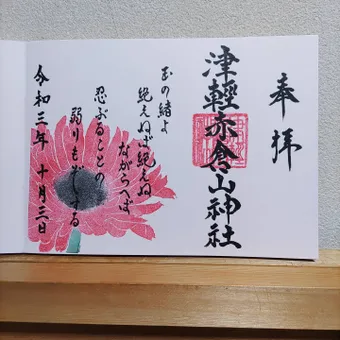 奉拝
津軽赤倉山神社
玉の緒よ
絶えねば絶えね
ながらへば
忍ぶることの
弱りもぞする
令和三年 十月三日